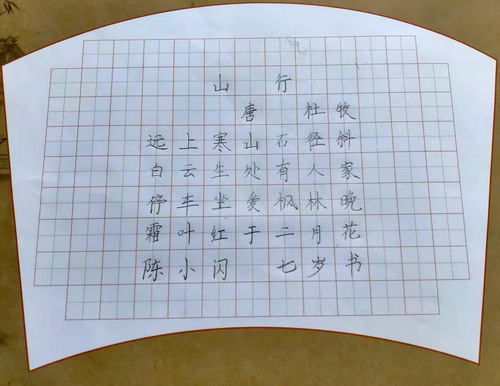 山行
唐 杜牧
远上寒山石径斜
白云生处有人家
停车坐爱枫林晚
霜叶红于二月花
陈小闪 七岁书